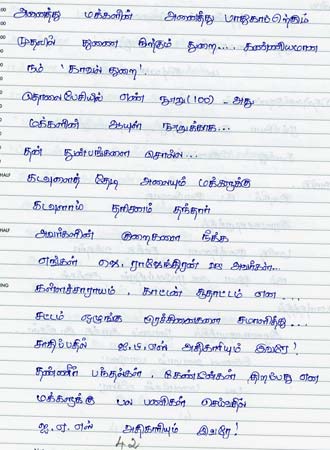 அனைத்து மக்களின் அனைத்து பாதுகாப்பிற்கும்
முதலில் துணை நிற்கும் துறை... கண்ணியமான
நம் 'காவல் துறை'.
தொலைபேசியில் எண் நூறு (100) - அது
மக்களின் ஆயுள் நூறுக்காக...
தன் துன்பங்களை சொல்ல...
கடவுளைத் தேடி அலையும் மக்களுக்கு
கடவுளாய் தரிசனம் தந்தார்
அவர்களின் குறைகளை நீக்க
எங்கள் ராஜேந்திரன் அவர்கள்...
கள்ளச்சாராயம், காட்டன் சூதாட்டம் என...
சட்டம் ஒழுங்கு பிரச்சினைகளை சமாளித்து...
சாதிப்பதில் ஐ.பி.எஸ் அதிகாரியும் இவரே!
தண்ணீர் பந்தல்கள், திறப்பது என
மக்களுக்கு பல பணிகள் செய்வதில்
ஐ.ஏ.எஸ் அதிகாரியும் இவரே!
42